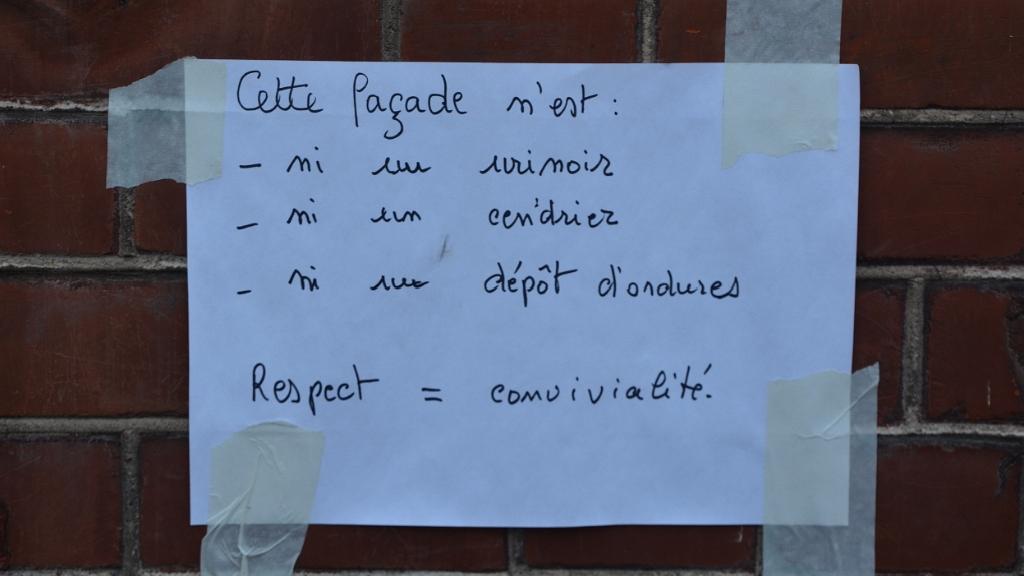 Cette façade n'est :
- ni un urinoir
- ni un cendrier
- ni un dépôt d'ordures
Respect = convivialité.